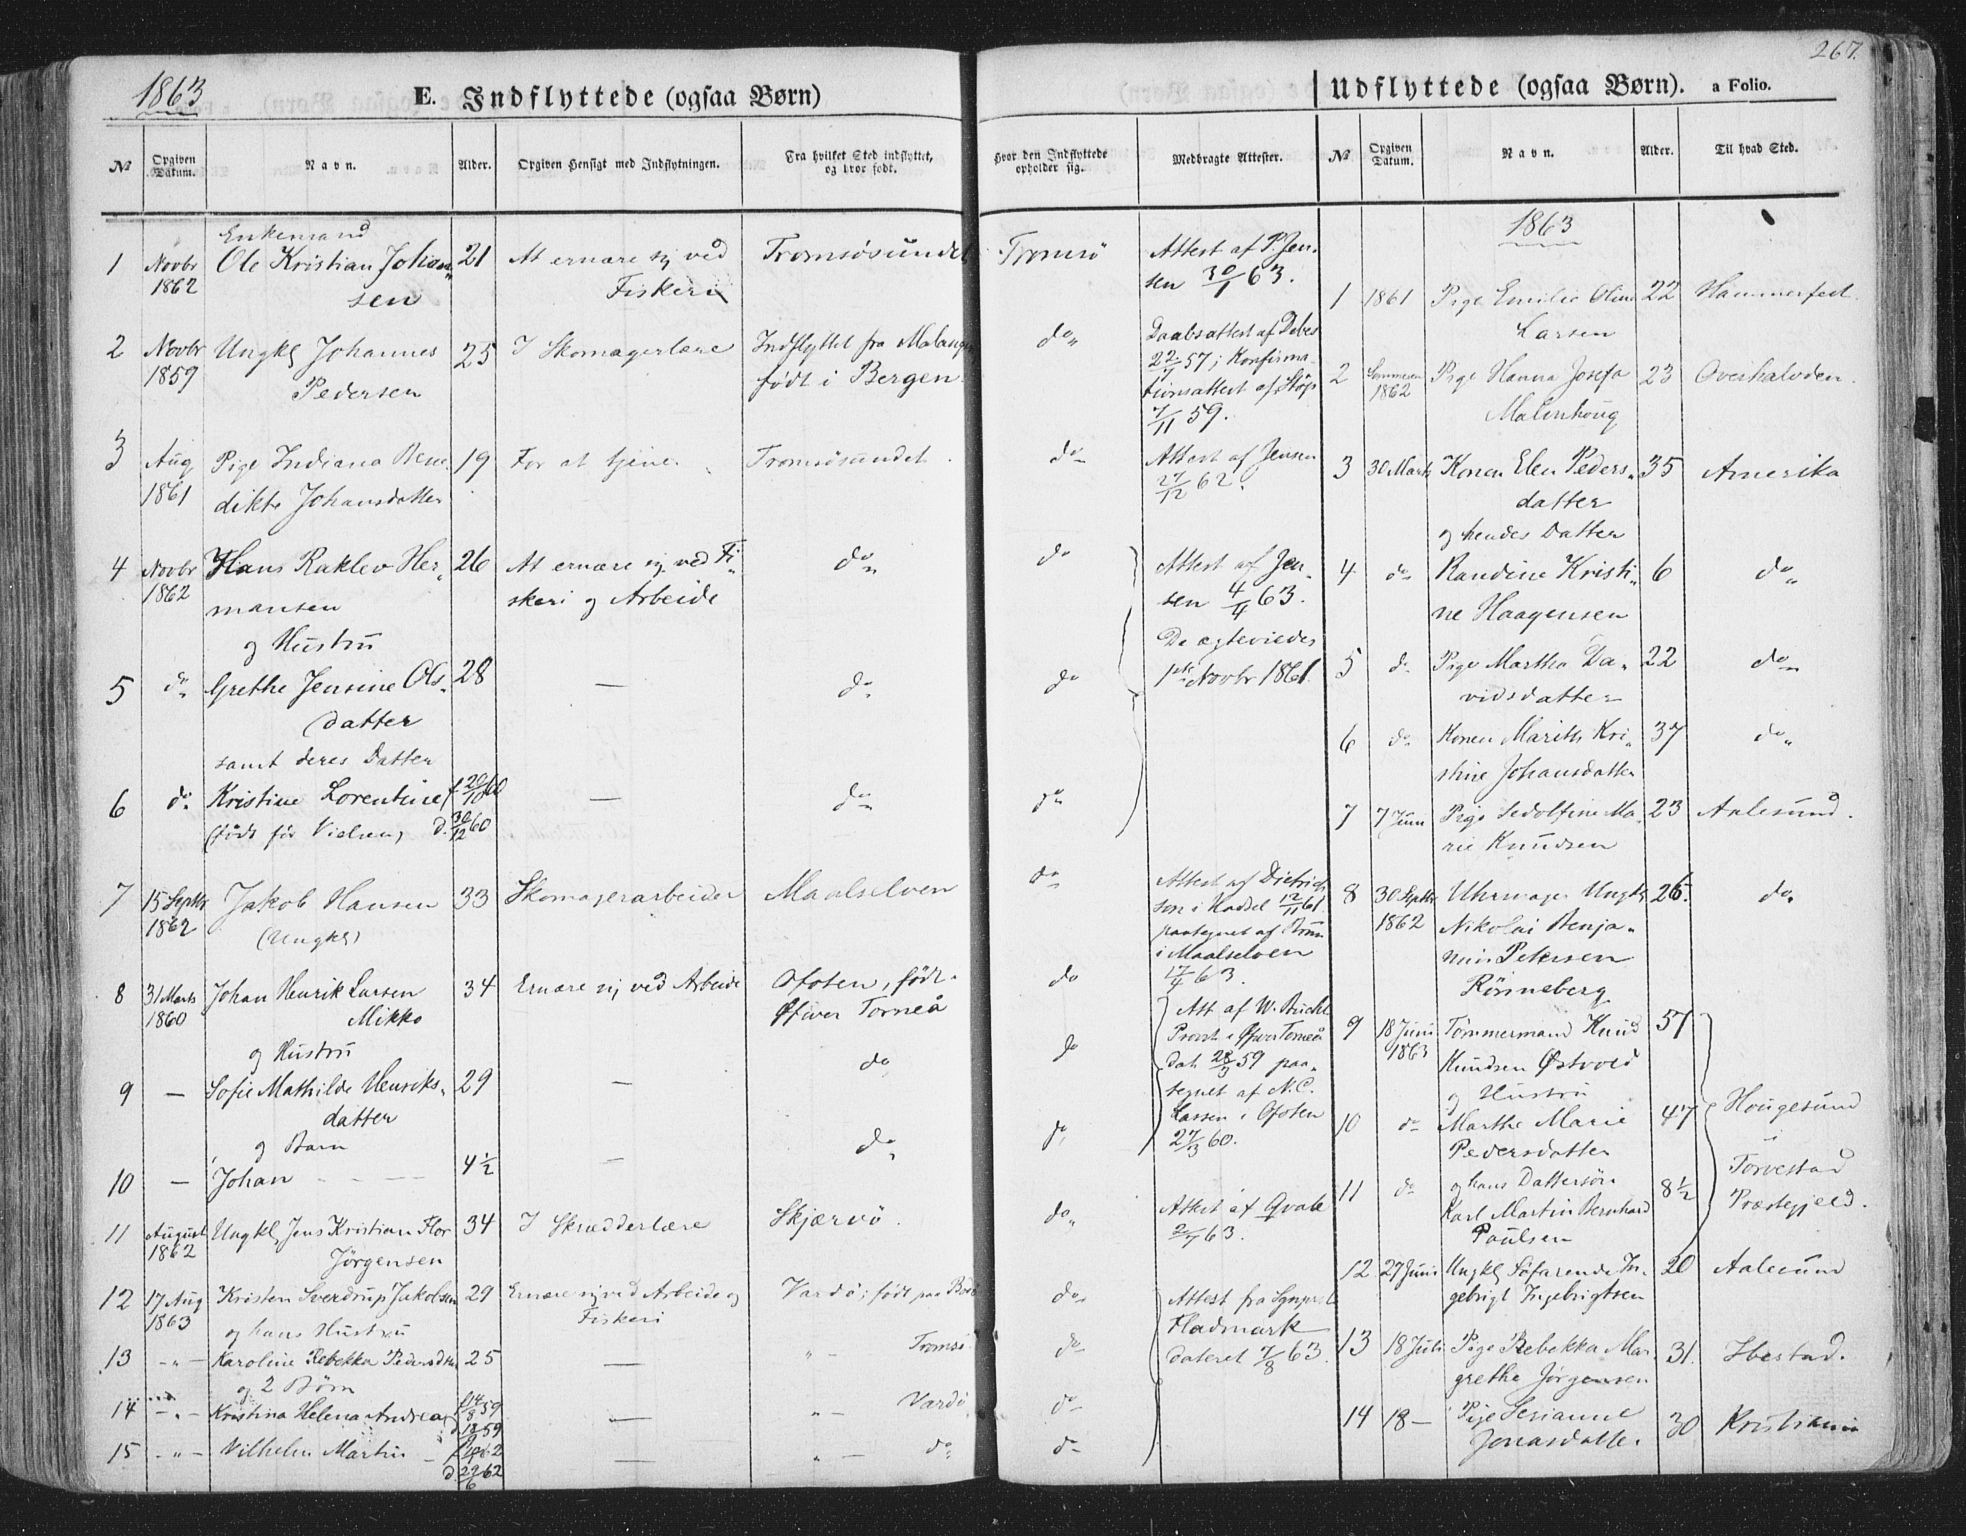 1863
E. Indflyttede (ogsaa Børn)
№ Opgiven Datum. Navn. Alder. Opgiven Hensigt med Indflytningen. Fra hvilket Sted indflyttet, og hvor født. Hvor den Indflyttede opholder sig. Medbragte Attester.
1 Novbr 1862 Enkemand Ole Kristian Johansen 21 At ernære sig ved Fiskeri Tromsøsundet Tromsø Attest af P. Jensen 30/1 63.
2 Novbr 1859 Ungkl Johannes Pedersen 25 I Skomagerlære Indflyttet fra Malangen født i Bergen do Daabsattest af Debes 57; Konfirmationsattest af 7/11 59.
3 Aug 1861 Pige Indiana Benedikte Johansdatter 19 For at tjene Tromsøsundet do Attest af Jensen 27/12 62.
4 Novbr 1862 Hans Raklev Hermansen og Hustru 26 At ernære sig ved Fiskeri og Arbeide do do Attest af Jensen 4/4 63. De egteviedes 1ste Novbr 1861.
5 do Grethe Jensine Olsdatter samt deres Datter 28 — do do
6 do Kristine Lorentine (født før Vielsen) f. 20/10 60 d. 30/12 60 — do do
7 15 Septbr 1862 Jakob Hansen (Ungkl) 33 Skomagerarbeider Maalselven do Attest af Dietrichson i Haddel 12/11 61. paategnet af i Maalselven 17/4 63.
8 31 Marts 1860 Johan Henrik Larsen Mikko og Hustru 34 Ernære sig ved Arbeide Ofoten, født Øfver Torneå do Att af W. Provst i Øfver Torneå dat 59 paategnet af N. C. Larsen i Ofoten 27/3 60.
9 — Sofie Mathilde Henriksdatter og Barn 29 — do do
10 — Johan 4 1/2 — do do
11 August 1862 Ungkl Jens Kristian Flor Jørgensen 34 I Skrædderlære Skjærvö. do Attest af Qvale 2/7 63.
12 17 Aug 1863 Kristen Sverdrup Jakobsen og hans Hustru 29 Ernære sig ved Arbeide og Fiskeri Vardö; født paa Bodö do Attest fra Sgnprest Hadmark dateret 7/8 63.
13 - " - Karoline Rebekka Pedersdtr og 2 Börn 25 — " — Tromsö do
14 - " - Kristina Helena Andrea f. 14/8 59 — " — Vardö do
15 - " - Vilhelm Martin d. 22/6 62 — " — do do
267.
Udflyttede (ogsaa Børn). a Folio.
№ Opgiven Datum. Navn. Alder. Til hvad Sted.
1863
1 1861 Pige Emilie Oline Larsen 22 Hammerfest.
2 Sommeren 1862 Pige Hanna Josefa Malinhoug 23 Overhalvden.
3 30 Marts Konen Elen Pedersdatter og hendes Datter 35 Amerika
4 do Randine Kristine Haagensen 6 do
5 do Pige Martha Davidsdatter 22 do
6 do Konen Marith Kristine Johansdatter 37 do
7 7 Juni Pige Sedolfine Marie Knudsen 23 Aalesund.
8 30 Septbr 1862 Uhrmager Ungkl Nikolai Benjamin Petersen Rönneberg 26. do
9 18 Juni 1863 Tømmermand Knud Knudsen Østvold og Hustru 57
10 do Marthe Marie Pedersdatter 47 Hougesund i Torvestad Præstegjeld.
11 do og hans Dattersön Karl Martin Bernhard Paulsen 8 1/2
12 27 Juni Ungkl Søfarende Ingebrigt Ingebrigtsen 20 Aalesund
13 18 Juli Pige Rebekka Margrethe Jørgensen 31. Ibestad.
14 18 — Pige Jonasdatter 30 Kristiania